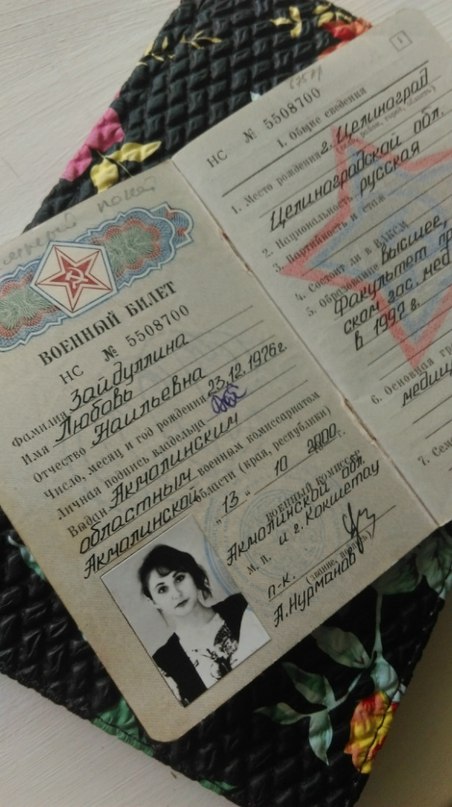 ВОЕННЫЙ БИЛЕТ
НС № 5508700
Фамилия Зайдуллина
Имя Любовь
Отчество Наильевна
Число, месяц и год рождения 23.12.1976г.
Личная подпись владельца
Выдан Акмолинским
областным военным комиссариатом
Акмолинской области (края, республики)
„ 13 “ 10 2000г.
ВОЕННЫЙ КОМИССАР
Акмолинской обл.
М. П. и г. Кокшетау
п-к.
(звание,
А.Нурманов
1
НС № 5508700
1. Общие сведения
1. Место рождения г. Целиноград
Целиноградской обл.
2. Национальность русская
3. Партийность и стаж
4. Состоит ли в ВЛКСМ
5. Образование высшее,
факультет
ском гос. мед
в 1997 г.
6. Основная
медиц
7. Сем